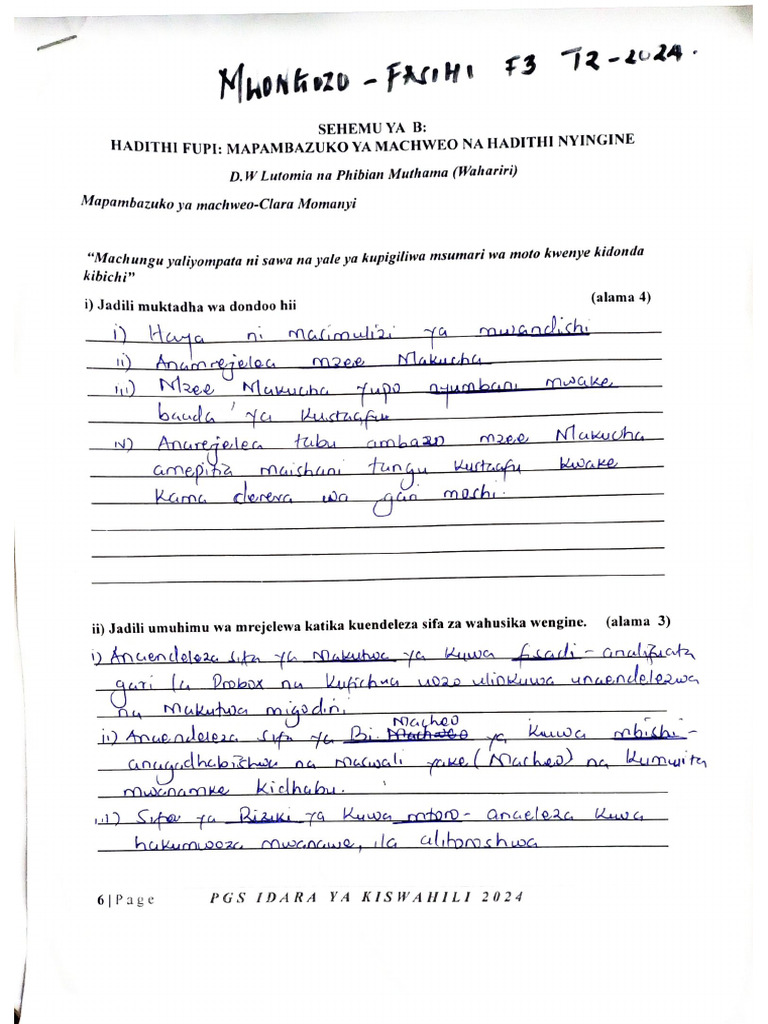 MWONGOZO - FASIHI F3 T2-2024.
SEHEMU YA B:
HADITHI FUPI: MAPAMBAZUKO YA MACHWEO NA HADITHI NYINGINE
D.W Lutomia na Phibian Muthama (Wahariri)
Mapambazuko ya machweo-Clara Momanyi
“Machungu yaliyompata ni sawa na yale ya kupigiliwa msumari wa moto kwenye kidonda
kibichi”
i) Jadili muktadha wa dondoo hii (alama 4)
i) Haya ni masimulizi ya mwandishi
ii) Anamrejelea mzee Makucha
iii) Mzee Makucha yupo nyumbani mwake
baada ya kustaafu
iv) Anarejelea tabu ambazo mzee Makucha
amepitia maishani tangu kustaafu kwake
kama dereva wa gari moshi.
ii) Jadili umuhimu wa mrejelewa katika kuendeleza sifa za wahusika wengine. (alama 3)
i) Anaendeleza sifa ya Makutwa ya kuwa fisadi - analifuata
gari la Probox na kufichua uozo uliokuwa unaendelezwa
na Makutwa migodini
ii) Anaendeleza sifa ya Bi. Macheo ya kuwa mbishi -
anagadhabishwa na maswali yake (Macheo) na kumwita
mwanamke kidhabu.
iii) Sifa ya Riziki ya kuwa mtoro - anaeleza kuwa
hakumwoza mwanawe, ila alitoroshwa
6|Page PGS IDARA YA KISWAHILI 2024